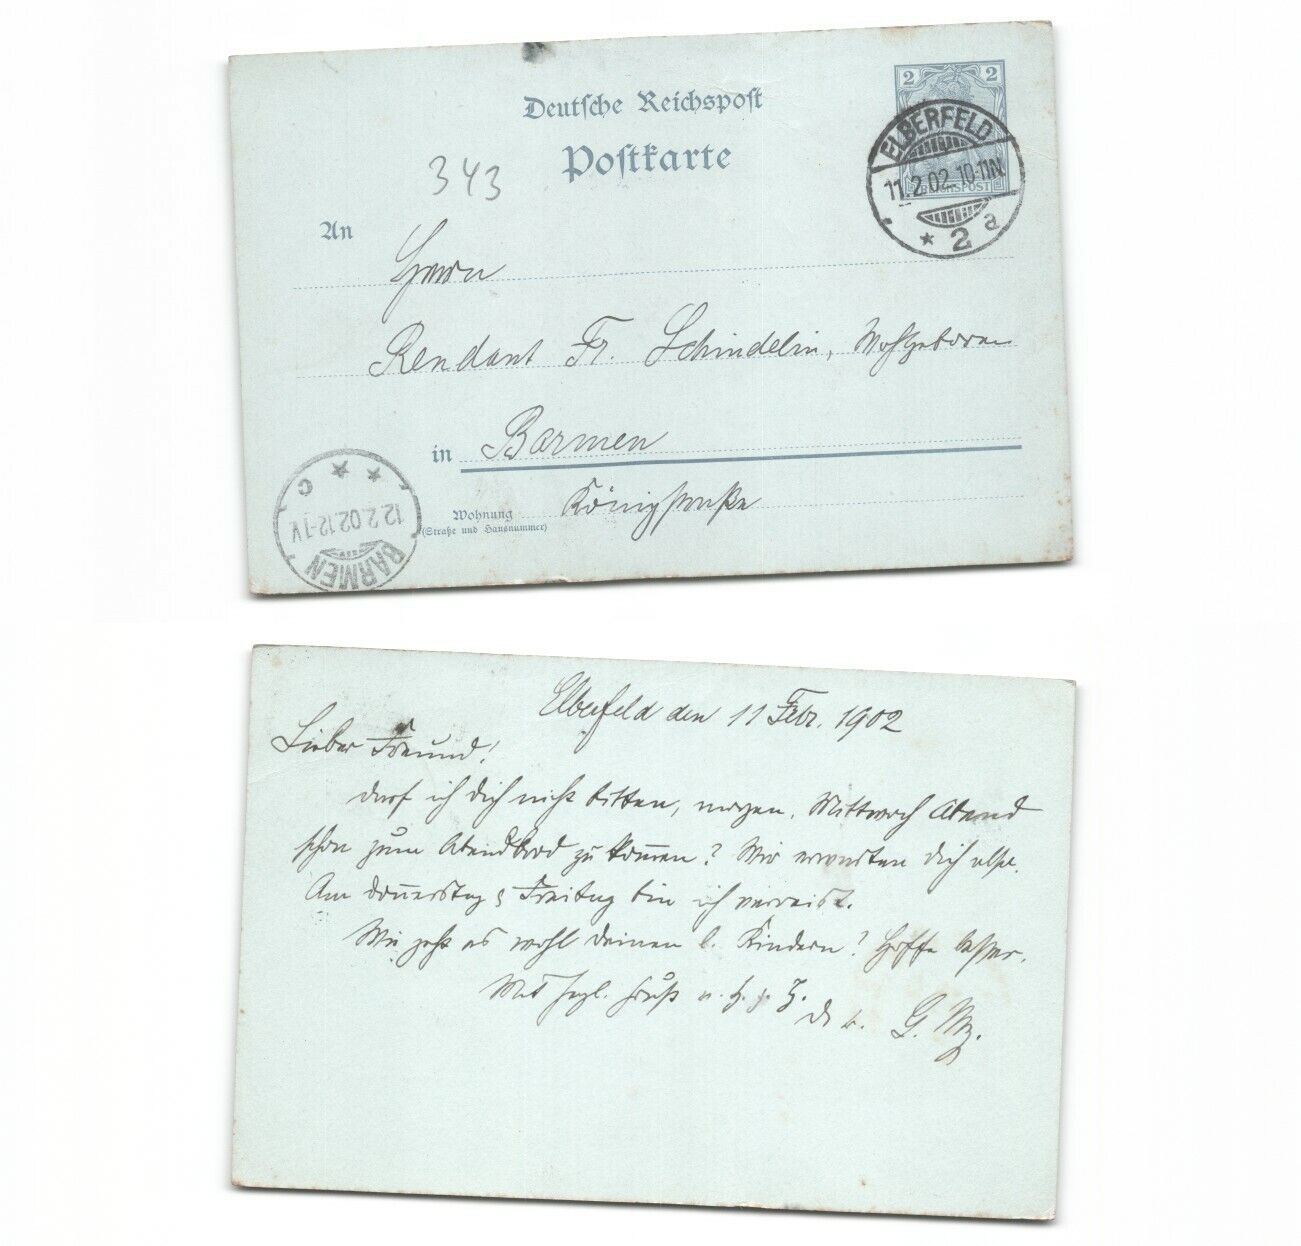 Deutsche Reichspost
Postkarte
343
2 2
REICHSPOST
ELBERFELD
11.2.02.10-11N.
* 2 a
An
Herrn
Rendant Fr. Schindelin, Wohlgeboren
in Barmen
Wohnung
(Straße und Hausnummer)
Königstraße
BARMEN
12.2.02.12-1V.
* * c
Elberfeld den 11 Febr. 1902
Lieber Freund!
Darf ich Dich nicht bitten, morgen, Mittwoch Abend
schon zum Abendbrod zu kommen? Wir erwarten Dich also.
Am Donnerstag & Freitag bin ich verreist.
Wie geht es wohl Deinen l. Kindern? Hoffe besser.
Mit herzl. Gruß v. H. z. H.
G. Mz.